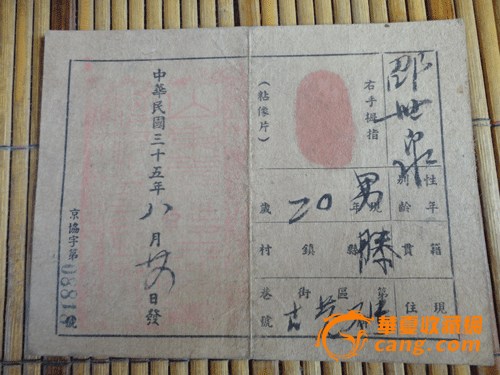 邵世泉
右手拇指
(粘像片)
性別 男
年齡 現年20歲
籍貫 滕縣鎮村
現住 第區街巷號
中華民國三十五年八月 日發
京協字第 號
華夏收藏網
cang.com